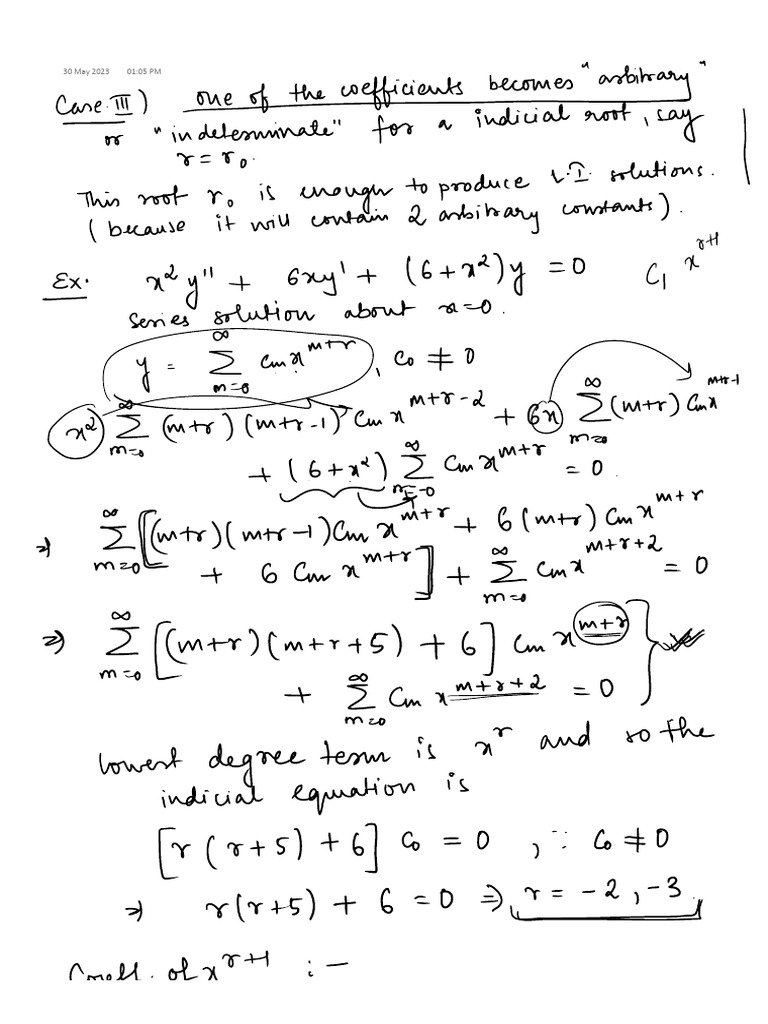 30 May 2023 01:05 PM
Case III) one of the coefficients becomes "arbitrary"
or "indeterminate" for a indicial root, say
r = r₀.
This root r₀ is enough to produce L.I. solutions.
(because it will contain 2 arbitrary constants).
Ex. x² y'' + 6xy' + (6+x²)y = 0 C₁ x^{r+1}
Series solution about x=0.
y = ∑_{m=0}^{∞} Cm x^{m+r}, C₀ ≠ 0
x² ∑_{m=0}^{∞} (m+r)(m+r-1) Cm x^{m+r-2} + 6x ∑_{m=0}^{∞} (m+r) Cm x^{m+r-1}
+ (6+x²) ∑_{m=0}^{∞} Cm x^{m+r} = 0.
⇒ ∑_{m=0}^{∞} [(m+r)(m+r-1) Cm x^{m+r} + 6(m+r) Cm x^{m+r}
+ 6 Cm x^{m+r}] + ∑_{m=0}^{∞} Cm x^{m+r+2} = 0
⇒ ∑_{m=0}^{∞} [(m+r)(m+r+5) + 6] Cm x^{m+r}
+ ∑_{m=0}^{∞} Cm x^{m+r+2} = 0
lowest degree term is x^r and so the
indicial equation is
[r(r+5) + 6] C₀ = 0, ∵ C₀ ≠ 0
⇒ r(r+5) + 6 = 0 ⇒ r = -2, -3
Coeff. of x^{r+1} : —